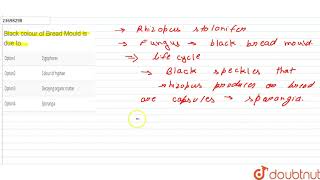 23698298
Black colour of Bread Mould is
due to
Option1 Zygophores
Option2 Colour of hyphae
Option3 Decaying organic matter
Option4 Sporangia
→ Rhizopus stolonifer
→ Fungus → black bread mould
→ life cycle
→ Black speckles that
rhizopus produces on bread
are capsules → sporangia.
doubtnut